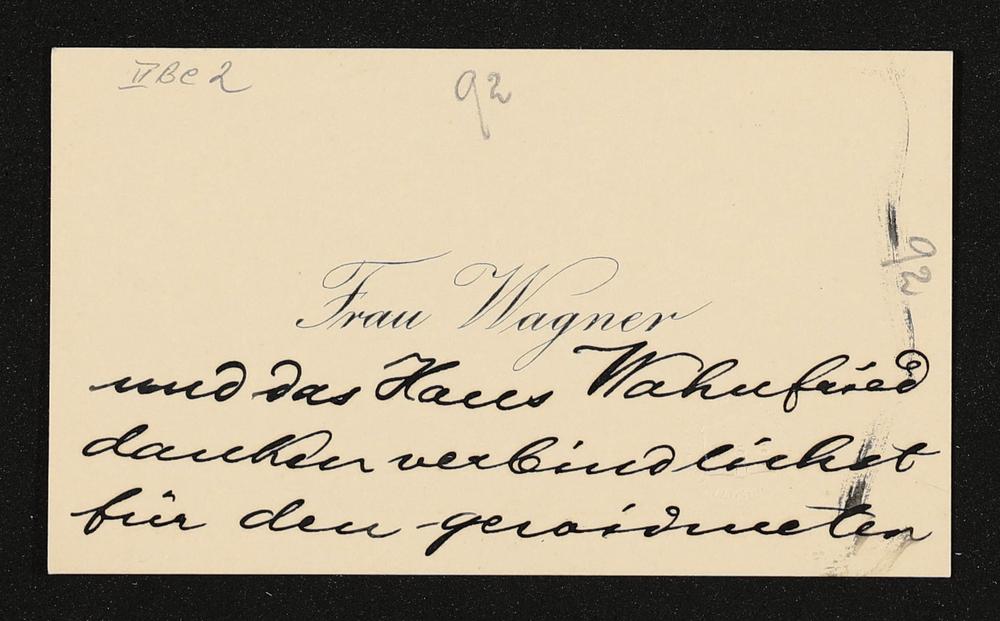 II BC 2
92
92
Frau Wagner
und das Haus Wahnfried
danken verbindlichst
für den gewidmeten